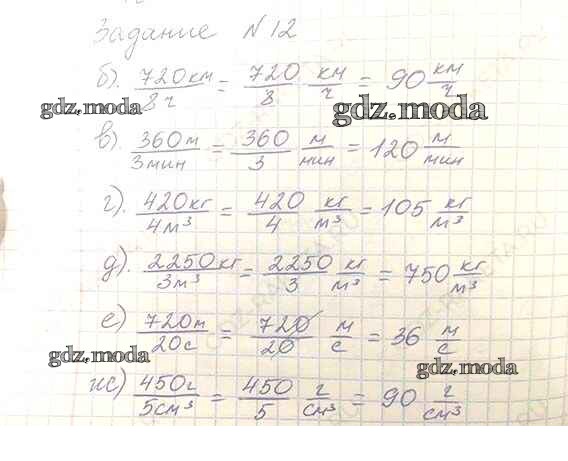 Задание №12
б). 720км/8ч = 720/8 км/ч = 90 км/ч
gdz.moda gdz.moda
в). 360м/3мин = 360/3 м/мин = 120 м/мин
г). 420кг/4м³ = 420/4 кг/м³ = 105 кг/м³
д). 2250кг/3м³ = 2250/3 кг/м³ = 750 кг/м³
е) 720м/20с = 720/20 м/с = 36 м/с
gdz.moda gdz.moda
ж) 450г/5см³ = 450/5 г/см³ = 90 г/см³